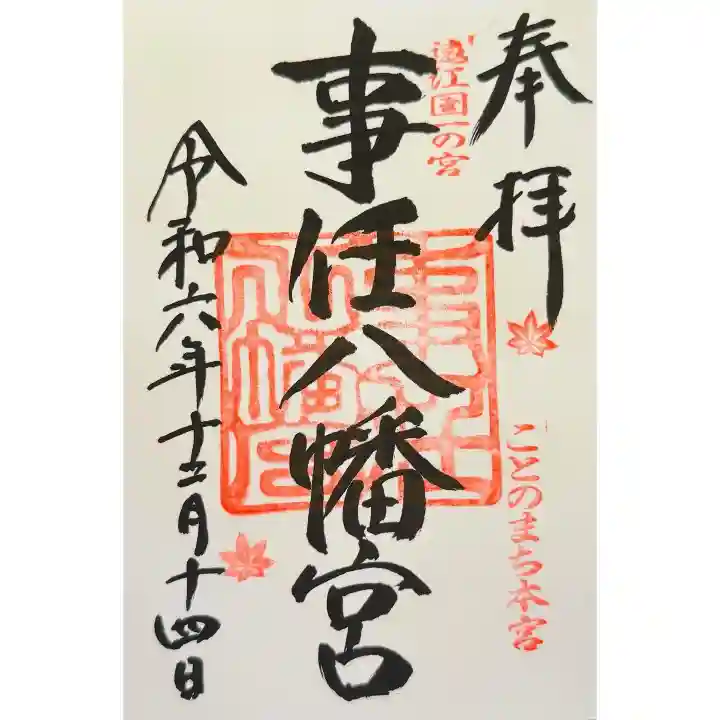 奉拝
ことのまち本宮
遠江国一の宮
事任八幡宮
令和六年十二月十四日